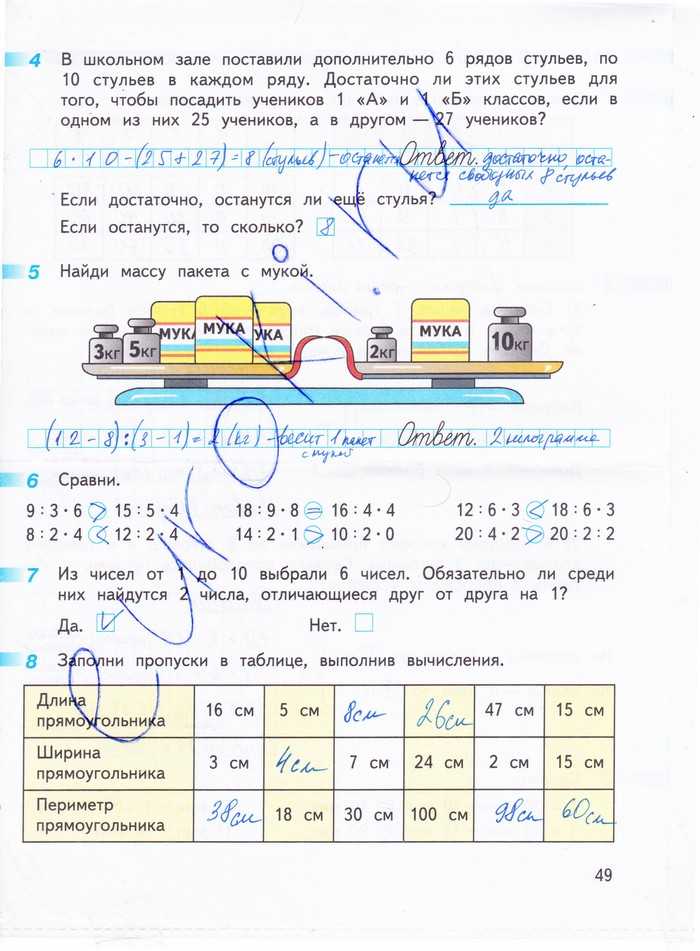 4 В школьном зале поставили дополнительно 6 рядов стульев, по
10 стульев в каждом ряду. Достаточно ли этих стульев для
того, чтобы посадить учеников 1 «А» и 1 «Б» классов, если в
одном из них 25 учеников, а в другом — 27 учеников?
6 · 10 - (25 + 27) = 8 (стульев) - останется Ответ. достаточно, оста-
нется свободных 8 стульев
Если достаточно, останутся ли ещё стулья? да
Если останутся, то сколько? 8
5 Найди массу пакета с мукой.
3кг 5кг МУКА МУКА УКА 2кг МУКА 10кг
(12 - 8) : (3 - 1) = 2 (кг) - весит 1 пакет Ответ. 2 килограмма
с мукой
6 Сравни.
9 : 3 · 6 > 15 : 5 · 4 18 : 9 · 8 = 16 : 4 · 4 12 : 6 · 3 < 18 : 6 · 3
8 : 2 · 4 < 12 : 2 · 4 14 : 2 · 1 > 10 : 2 · 0 20 : 4 · 2 > 20 : 2 : 2
7 Из чисел от 1 до 10 выбрали 6 чисел. Обязательно ли среди
них найдутся 2 числа, отличающиеся друг от друга на 1?
Да. Нет.
8 Заполни пропуски в таблице, выполнив вычисления.
Длина
прямоугольника 16 см 5 см 8см 26см 47 см 15 см
Ширина
прямоугольника 3 см 4см 7 см 24 см 2 см 15 см
Периметр
прямоугольника 38см 18 см 30 см 100 см 98см 60см
49
e-uroki.ru